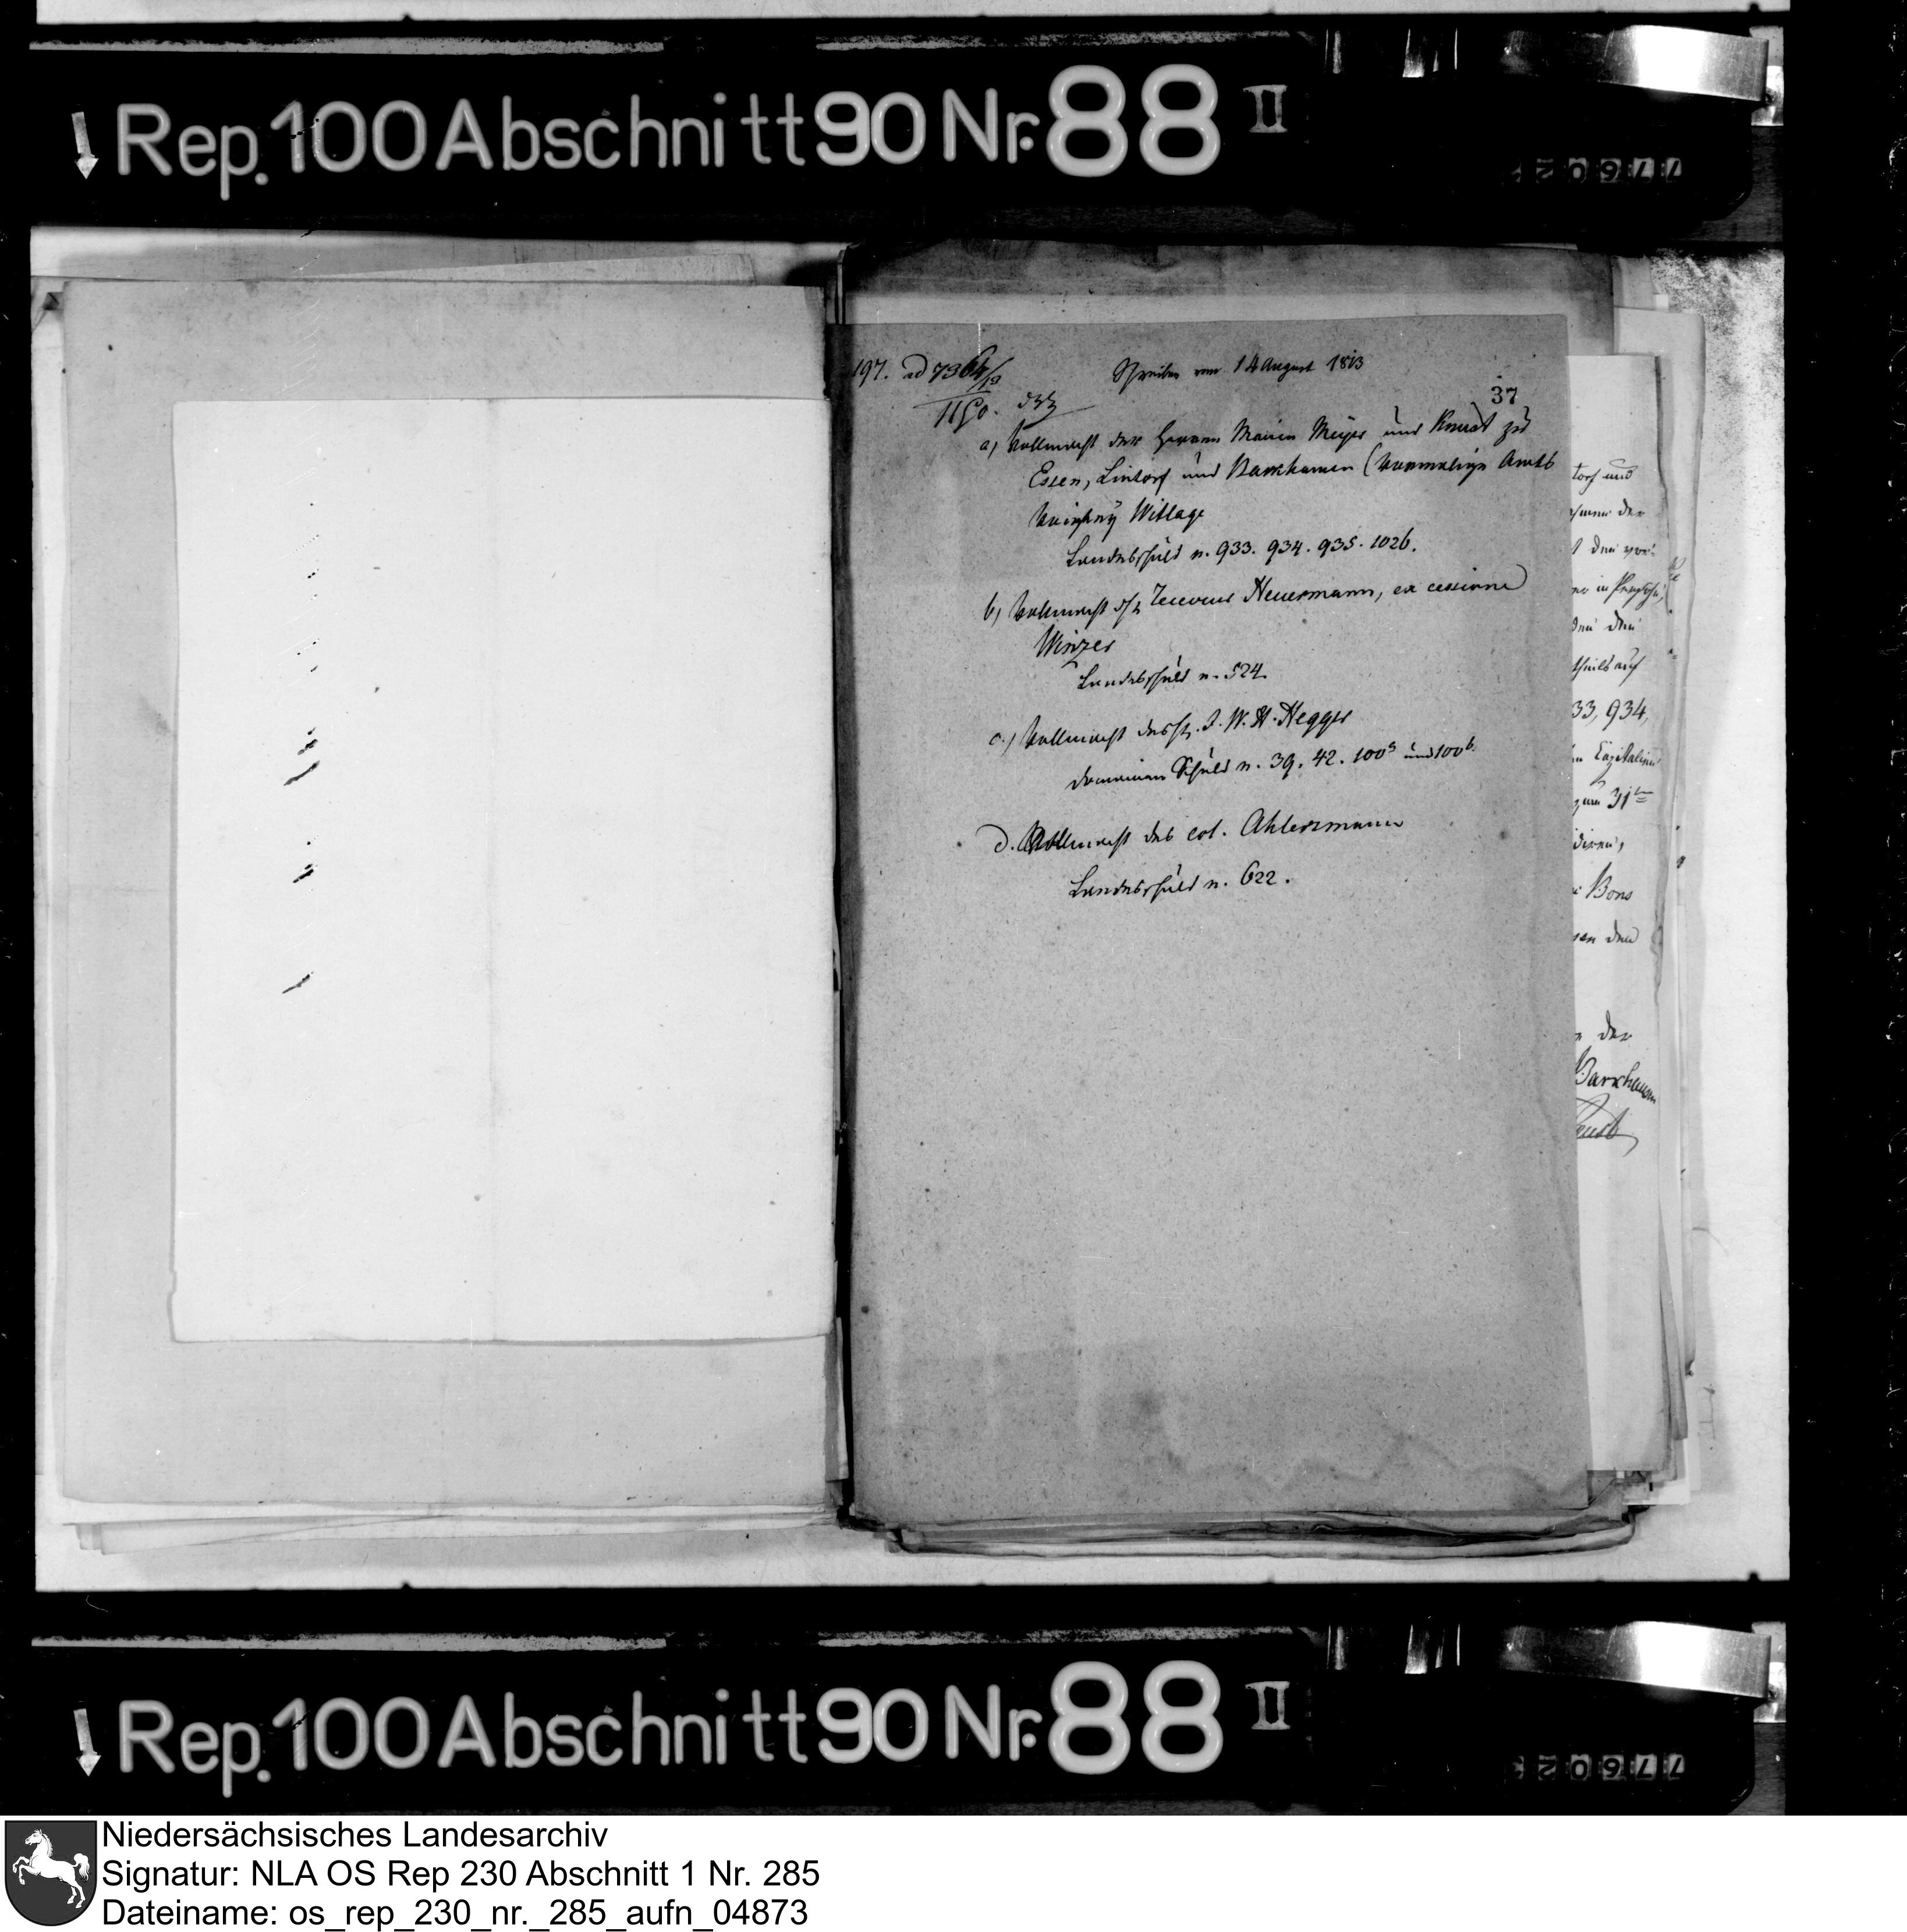 Rep. 100 Abschnitt 90 Nr. 88 II
77602
197. ad 7364/13
1150.
Schreiben vom 14 August 1813
37
a) Vollmacht der Herren Maires Meyer und Knust zu
Essen, Lintorf und Barkhausen (vormaligen Amts
Wittlage
Landesschuld n. 933. 934. 935. 1026.
b) Vollmacht Heuermann, ex cessione
Winzer
Landesschuld n. 524.
c.) Vollmacht des H. J. W. H. Hegger
Domainen Schuld n. 39. 42. 100a und 100b
d. Vollmacht des col. Ahlersmann
Landesschuld n. 622.
torf und
der
t den
den
theils auf
33, 934,
Capitalien
zum 31ten
Bons
der
Barkhausen
Knust
Rep. 100 Abschnitt 90 Nr. 88 II
77602
Niedersächsisches Landesarchiv
Signatur: NLA OS Rep 230 Abschnitt 1 Nr. 285
Dateiname: os_rep_230_nr._285_aufn_04873